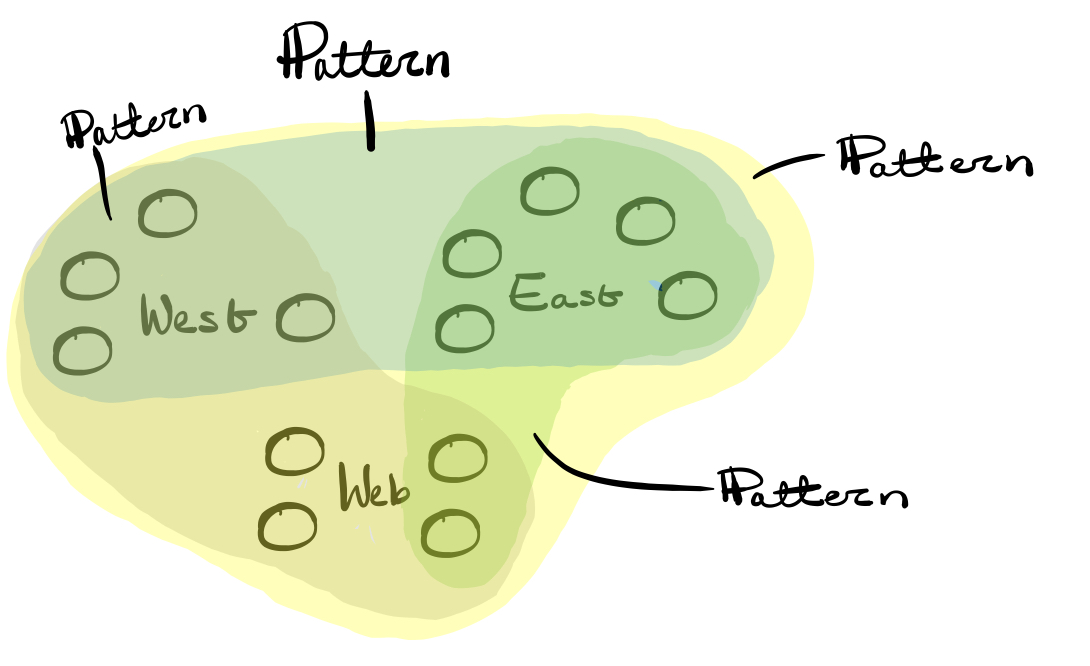 Pattern
Pattern
Pattern
East
West
Web
Pattern